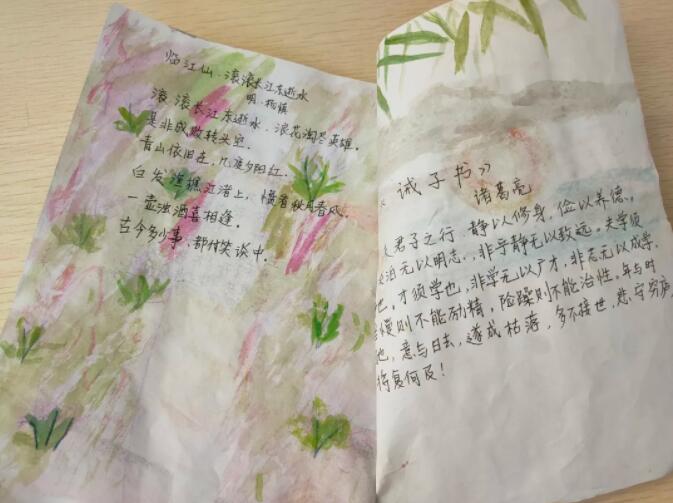 临江仙·滚滚长江东逝水
明·杨慎
滚滚长江东逝水,浪花淘尽英雄。
是非成败转头空。
青山依旧在,几度夕阳红。
白发渔樵江渚上,惯看秋月春风。
一壶浊酒喜相逢。
古今多少事,都付笑谈中。
诫子书》
诸葛亮
夫君子之行,静以修身,俭以养德。
泊无以明志,非宁静无以致远。夫学须
也,才须学也,非学无以广才,非志无以成学。
慢则不能励精,险躁则不能治性。年与时
也,意与日去,遂成枯落,多不接世,悲守穷庐,
将复何及!